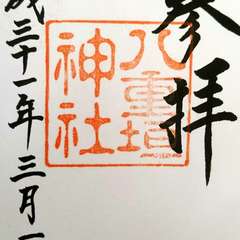 参拝
八重垣
神社
成三十一年三月一